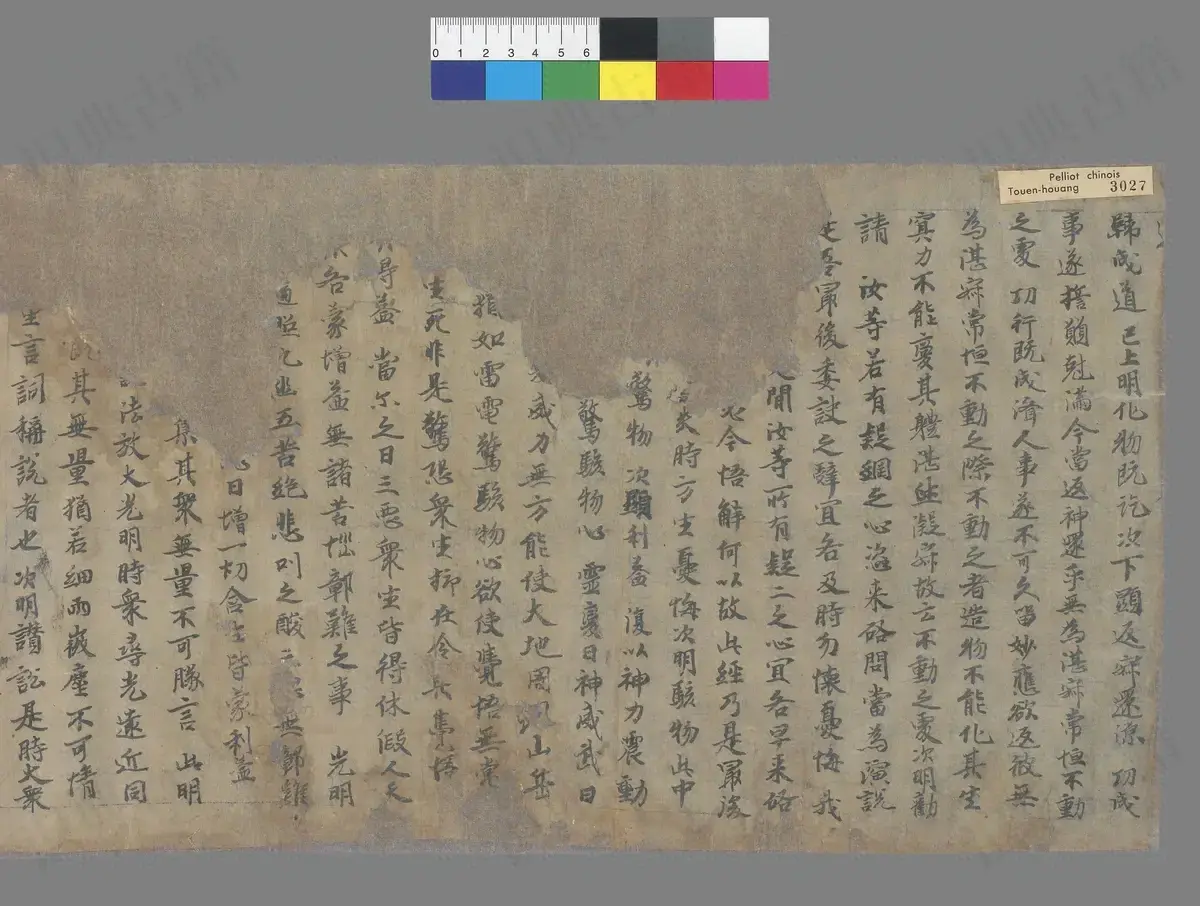 Pelliot chinois
Touen-houang 3027
0 1 2 3 4 5 6
歸成道 已上明化物既訖次下顯返寂還源 功成
事遂誓願尅滿今當返神還乎無為湛寂常恒不動
之處 功行既成濟人事遂不可久留妙應欲返彼無
為湛寂常恒不動之際不動之者造物不能化其生
寞力不能變其體湛然凝寂故云不動之處次明勸
請 汝等若有疑網之心咨来諮問當為演說
是吾冣後委訣之辭宜各及時勿懷憂悔 我
閒汝等所有疑二之心宜各早来諮
今悟解何以故此經乃是冣後
失時方生憂悔次明駭物此中
驚物 次顯利益 復以神力震動
驚駭物心 靈變曰神威武曰
威力無方能使大地國 山岳
指如雷電驚駭物心欲使覺悟無常
生死非是驚恐衆生抑在令其集悟
得益 當尔之日三惡衆生皆得休假人天
各蒙增益無諸苦惱鄣難之事 光明
五苦絶悲 之酸 無鄣難
日增一切含生皆蒙利益
集其衆無量不可勝言 此明
法放大光明時衆尋光遠近同
其無量猶若細雨微塵不可情
生言詞稱說者也 次明讚訟是時大衆